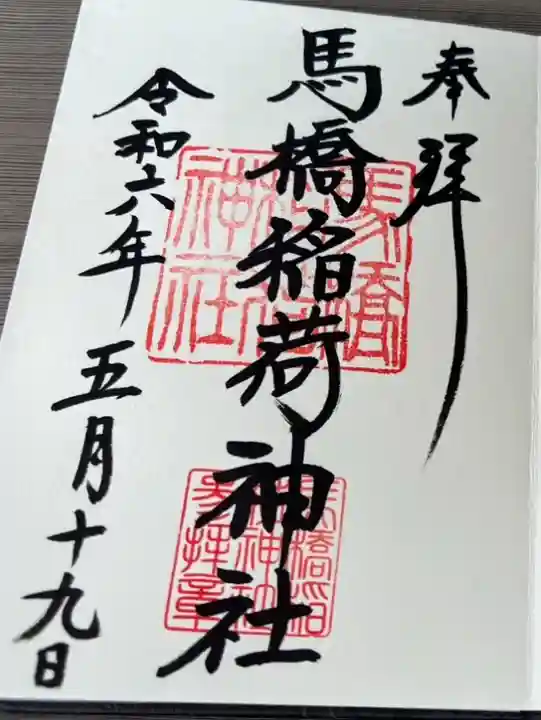 奉拝
馬橋稲荷神社
令和六年五月十九日
馬橋
稲荷
神社
馬橋稲
荷神社
参拝章